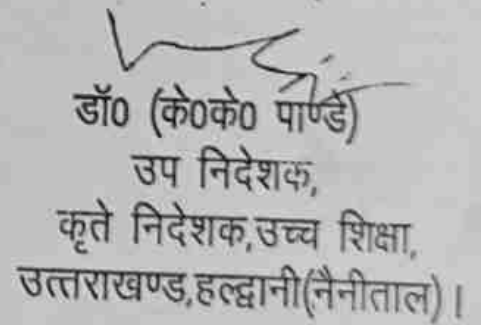 डॉ0 (के0के0 पाण्डे)
उप निदेशक,
कृते निदेशक,उच्च शिक्षा,
उत्तराखण्ड,हल्द्वानी(नैनीताल)।